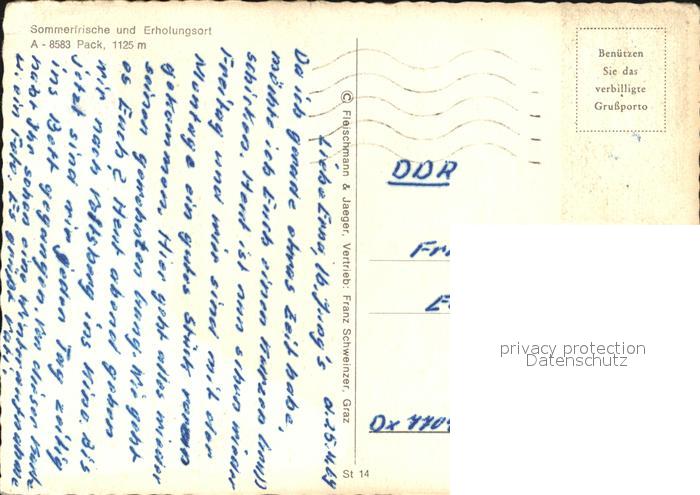 Sommerfrische und Erholungsort
A - 8583 Pack, 1125 m
Benützen
Sie das
verbilligte
Grußporto
Liebe Erna, d. 25.4.69
Da ich gerade etwas Zeit habe,
möchte ich Euch einen kurzen Gruß
schicken. Heut ist nun schon wieder
Freitag und wir sind mit der
Montage ein gutes Stück voran
gekommen. Hier geht alles wieder
seinen gewohnten Gang. Wie geht
es Euch? Heut abend gehen
wir nach ins Kino. Bis
jetzt sind wir jeden Tag zeitig
ins Bett gegangen. Von dieser Karte
habt Ihr schon eine
© Fleischmann & Jaeger, Vertrieb: Franz Schweinzer, Graz
St 14
DDR
privacy protection
Datenschutz